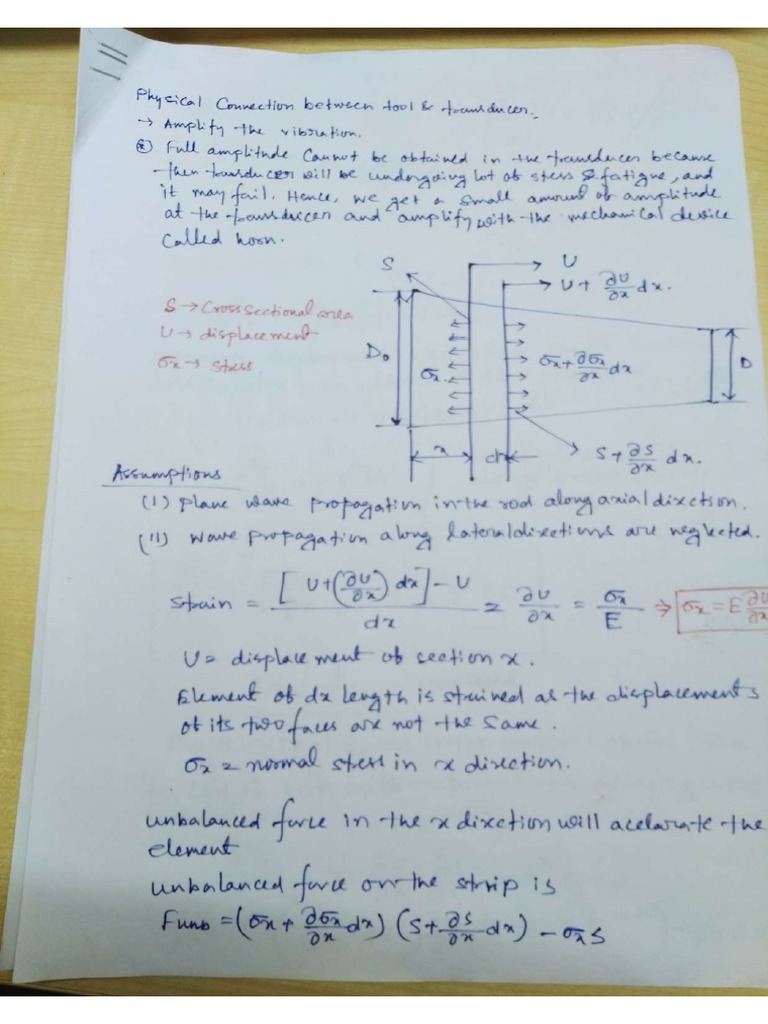 Physical Connection between tool & transducer.
→ Amplify the vibration.
⊛ Full amplitude cannot be obtained in the transducer because
then transducer will be undergoing lot of stess & fatigue, and
it may fail. Hence, we get a small amount of amplitude
at the transducer and amplify with the mechanical device
called horn.
S → Cross sectional area
U → displacement
σx → stress.
S
U
U + ∂U/∂x dx.
D₀
σx
σx + ∂σx/∂x dx
D
x
dx
S + ∂S/∂x dx.
Assumptions
(i) plane wave propagation in the rod along axial direction.
(ii) wave propagation along lateral directions are neglected.
Strain = [U + (∂U/∂x) dx] - U / dx = ∂U/∂x = σx/E ⇒ σx = E ∂U/∂x
U = displacement of section x.
Element of dx length is strained as the displacements
of its two faces are not the same.
σx = normal stress in x direction.
unbalanced force in the x direction will acelarate the
element
unbalanced force on the strip is
Funb = (σx + ∂σx/∂x dx) (S + ∂S/∂x dx) - σx S